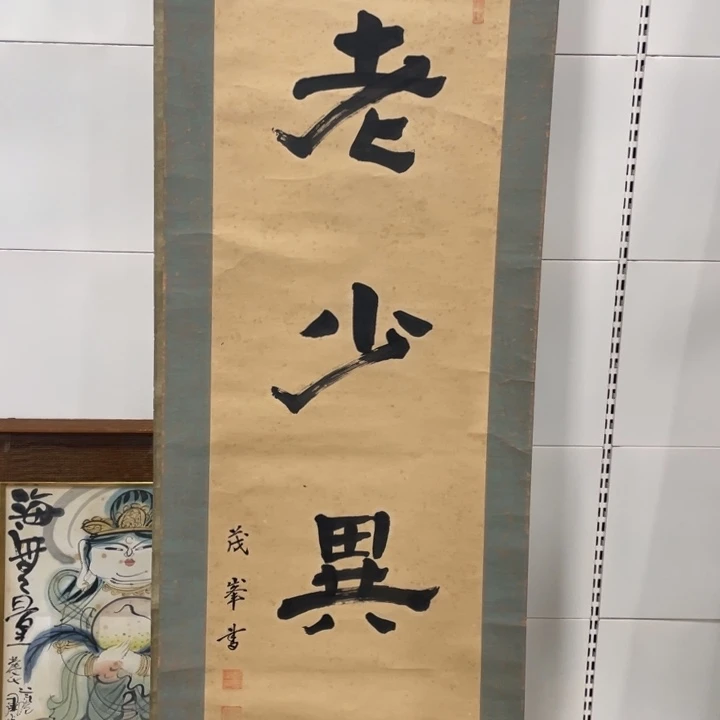 老少異
茂峯書
海無量